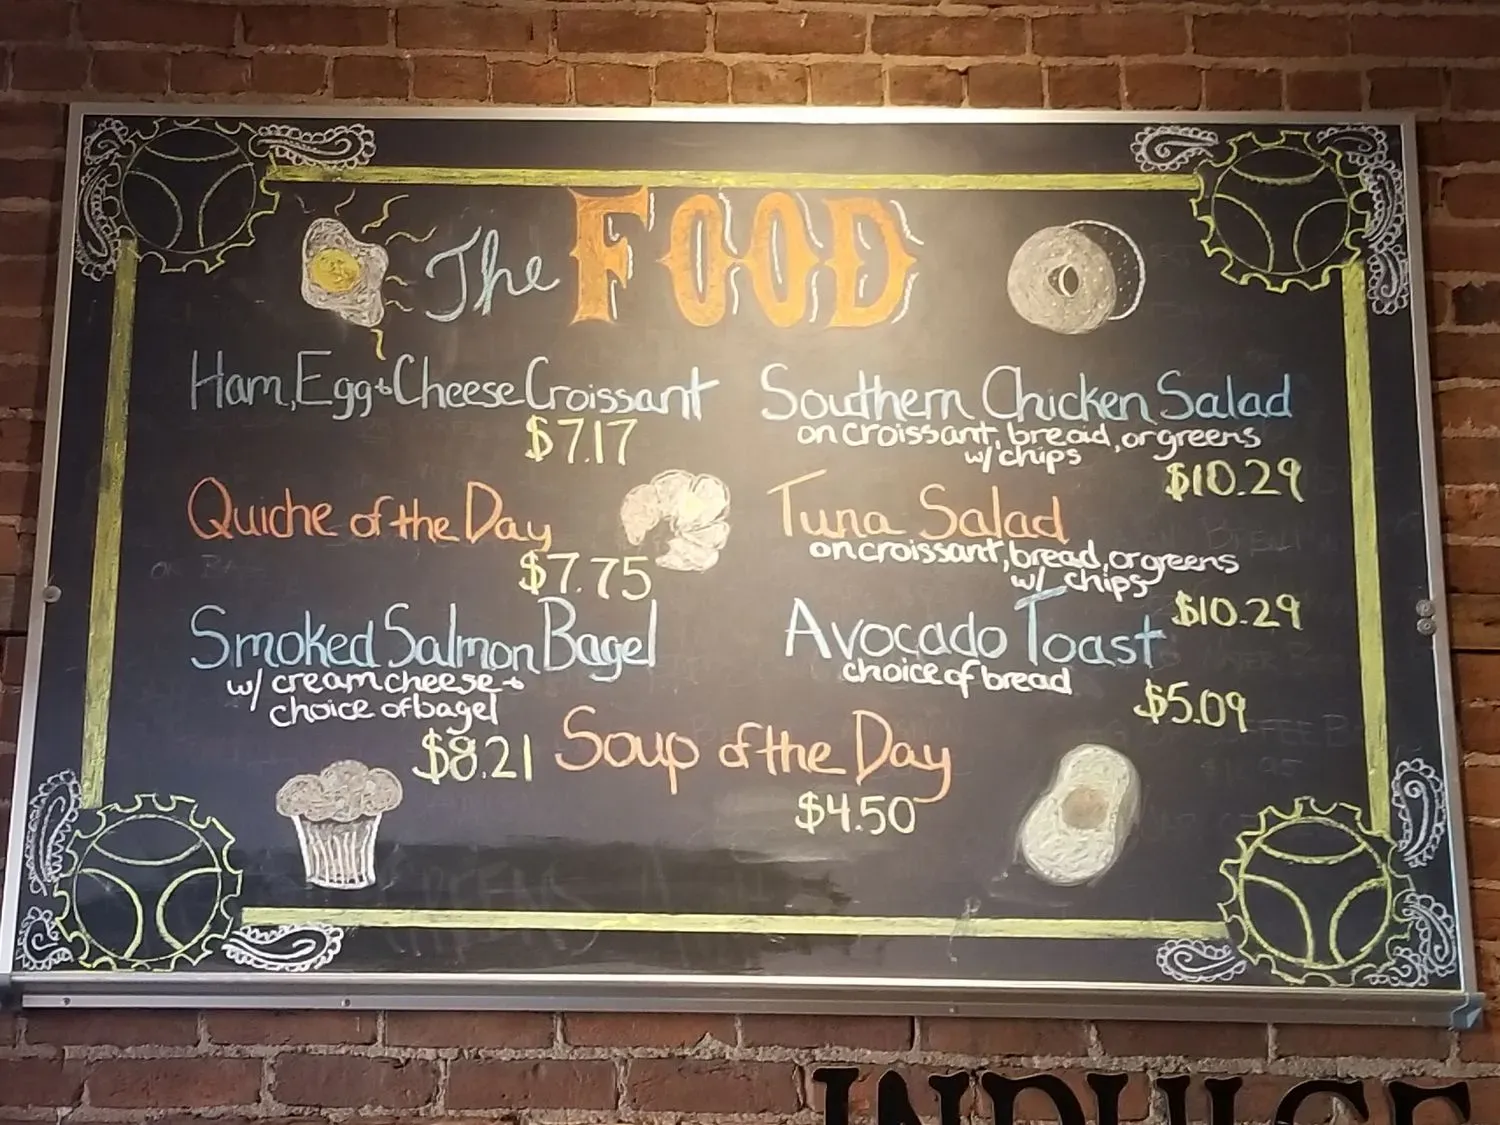 The FOOD
Ham, Egg + Cheese Croissant
$7.17
Quiche of the Day
$7.75
Smoked Salmon Bagel
w/ cream cheese +
choice of bagel
$8.21
Southern Chicken Salad
on croissant, bread, or greens
w/ chips
$10.29
Tuna Salad
on croissant, bread, or greens
w/ chips
$10.29
Avocado Toast
choice of bread
$5.09
Soup of the Day
$4.50
INDULGE